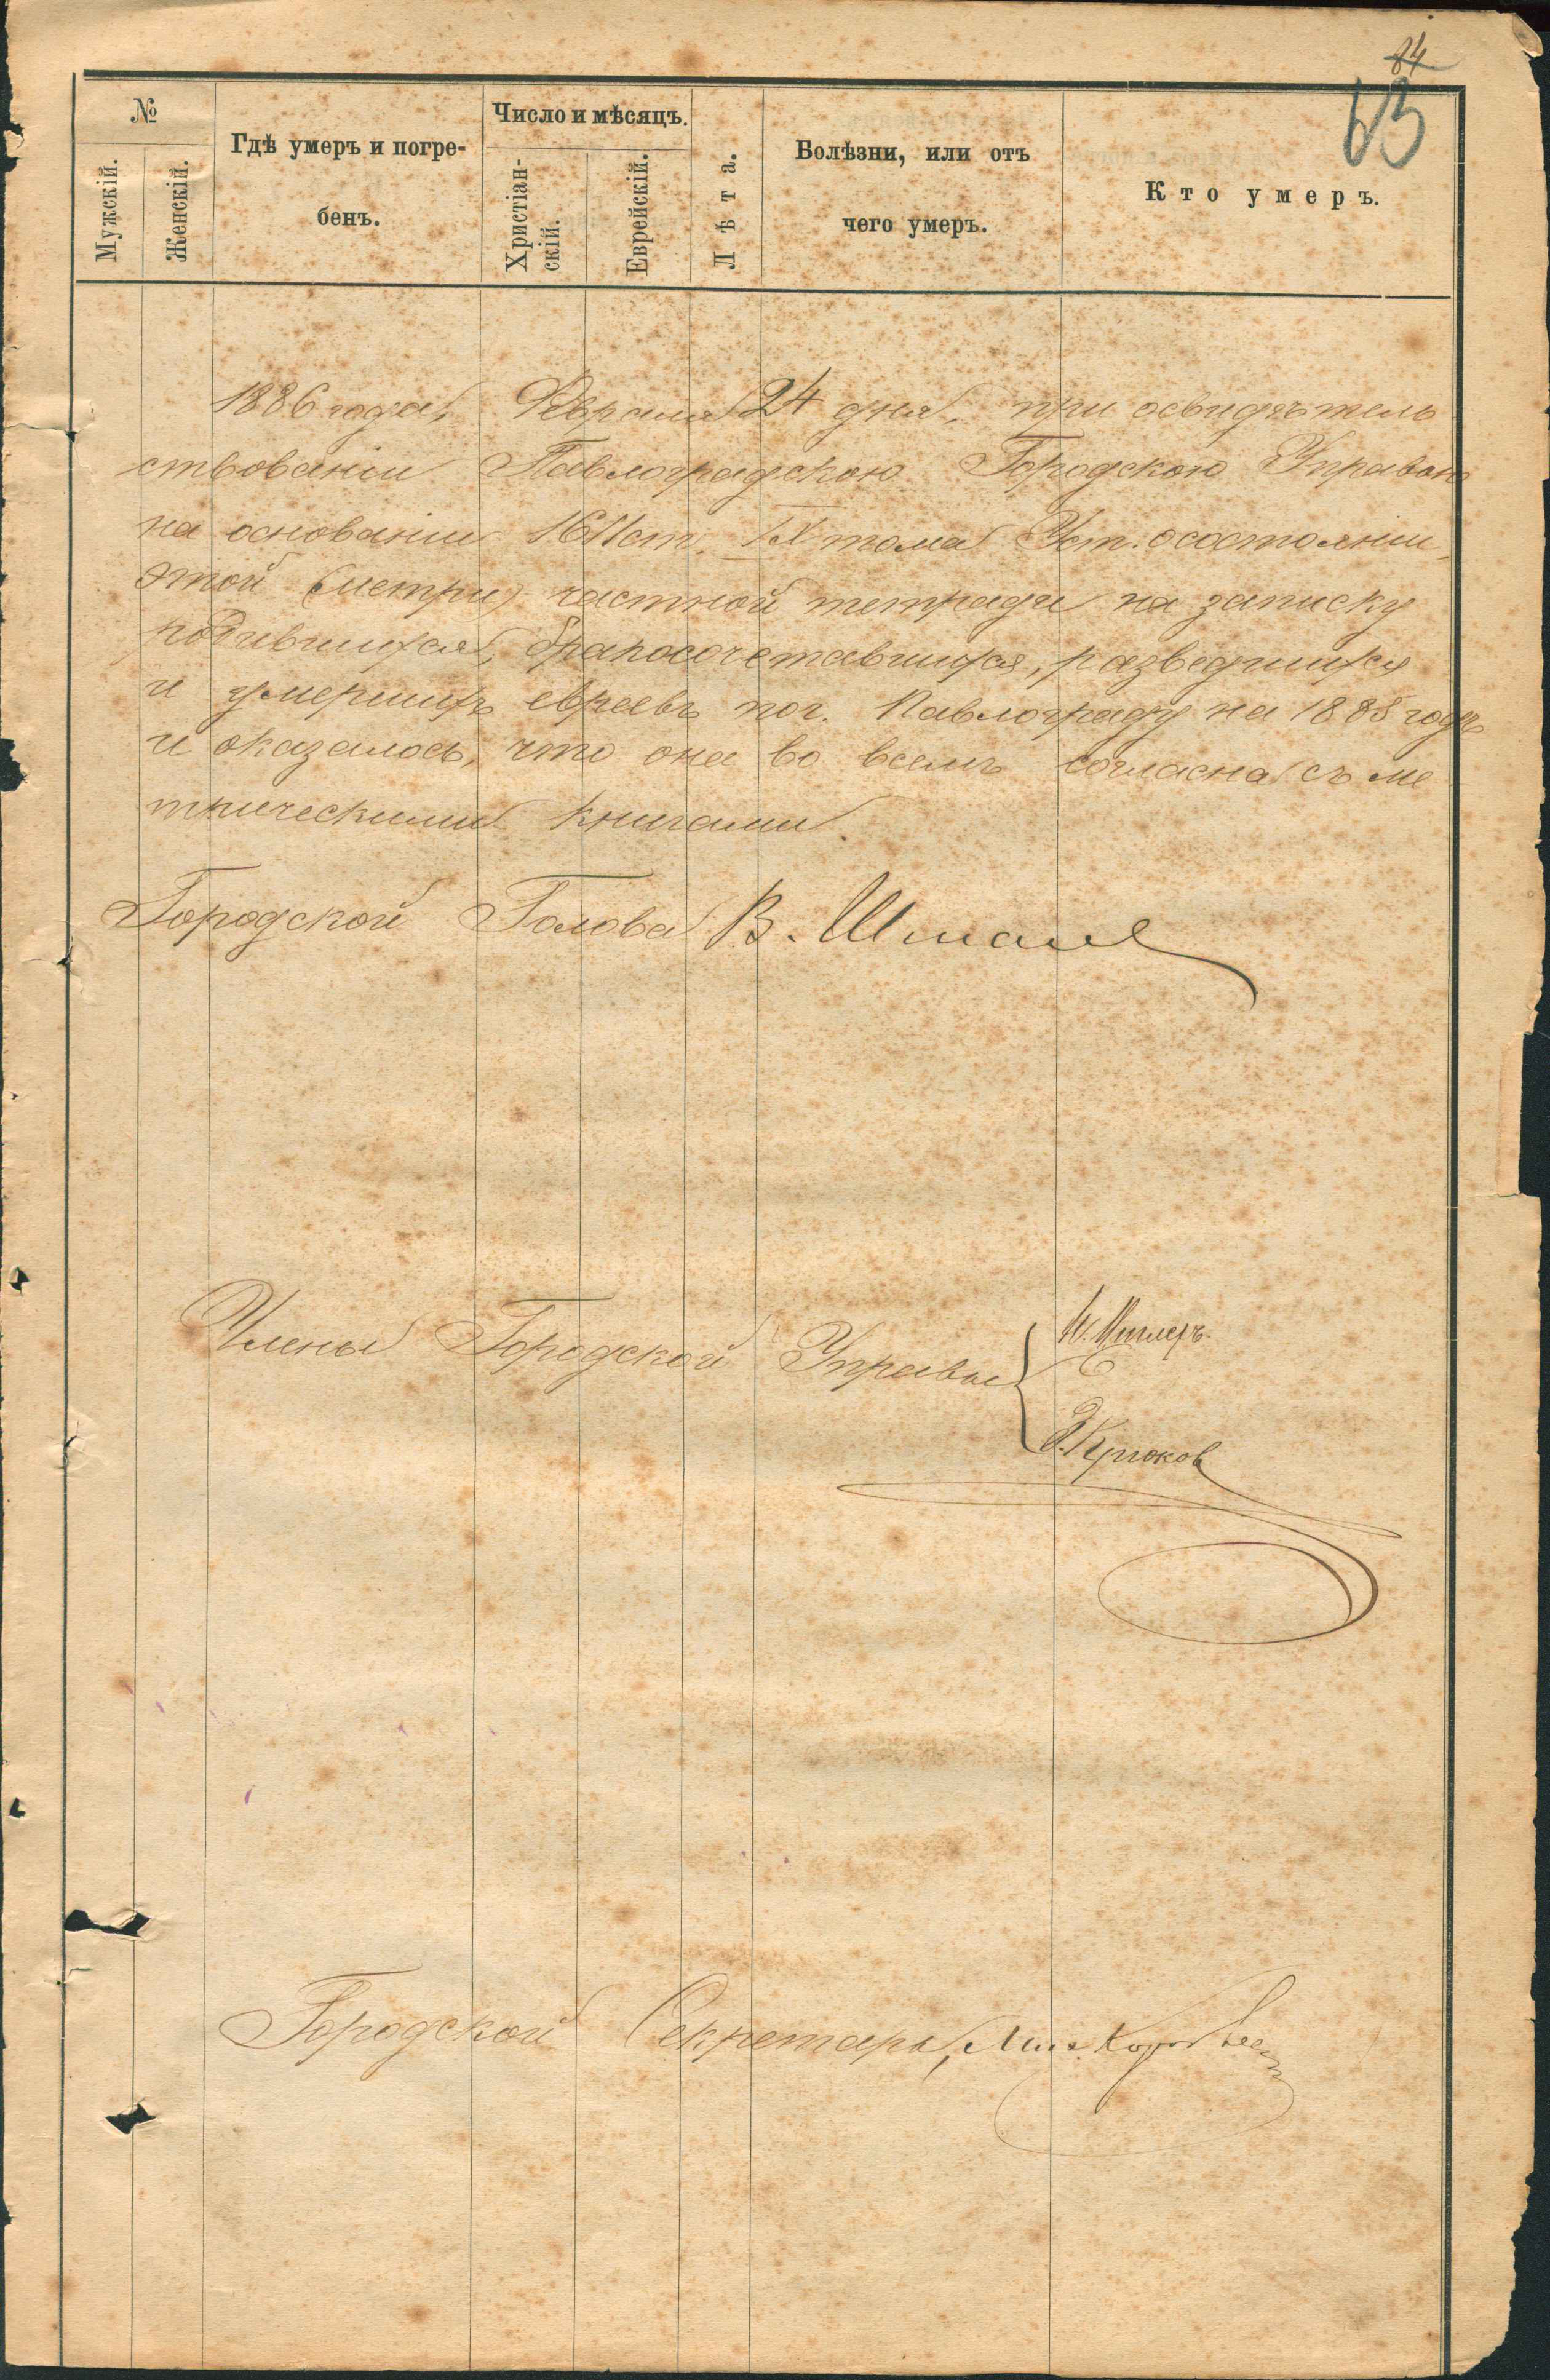 84
63
№
Мужскій.
Женскій.
Гдѣ умеръ и погре-
бенъ.
Число и мѣсяцъ.
Христіан-
скій.
Еврейскій.
Лѣта.
Болѣзни, или отъ
чего умеръ.
Кто умеръ.
1886 года, Февраля 24 дня, при освидѣтель
ствованіи Павлоградскою Городскою Управою
на основаніи 1611 ст. IX тома Уст. о состояніи,
этой (метри) частной тетради на записку
родившихся, бракосочетавшихся, разведшихся
и умершихъ евреевъ по г. Павлограду на 1885 годъ
и оказалось, что она во всемъ согласна съ ме
трическими книгами.
Городской Голова В.
Члены Городской Управы
Миллеръ.
Крюков
Городской Секретарь,